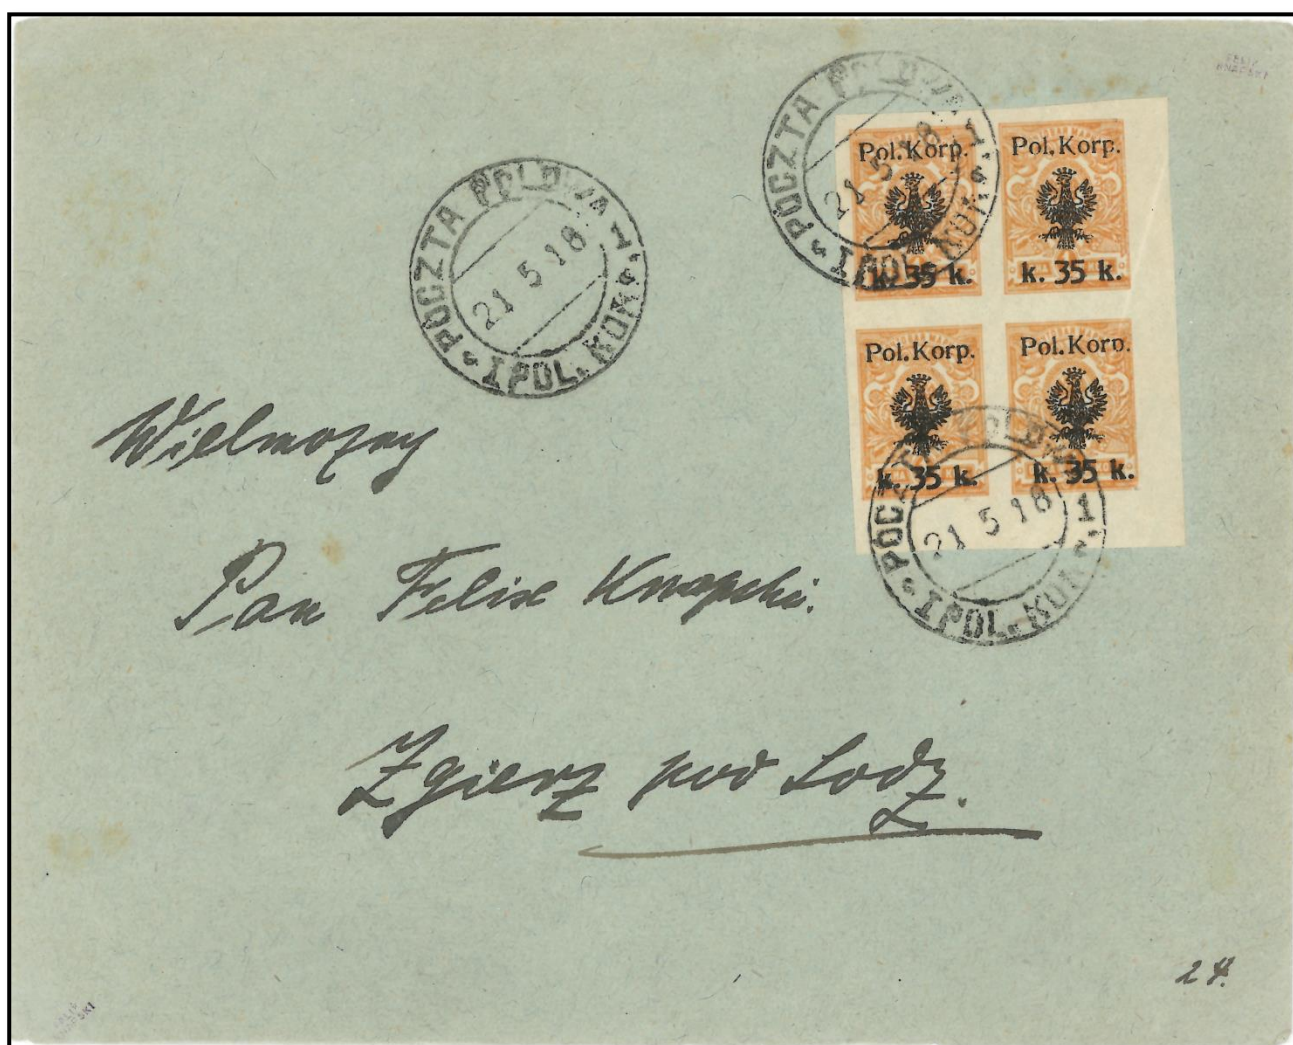 POCZTA POLOWA 1.
21 5 18
* I POL. KORP. *
POCZTA POLOWA 1.
21 5 18
I POL. KOR
Pol. Korp.
k. 35 k.
Pol. Korp.
k. 35 k.
Pol. Korp.
k. 35 k.
Pol. Korp.
k. 35 k.
POCZTA POLOWA 1.
21 5 18
I POL. KOR
Wielmożny
Pan Felix Knapski.
Zgierz pod Lodz.
24.